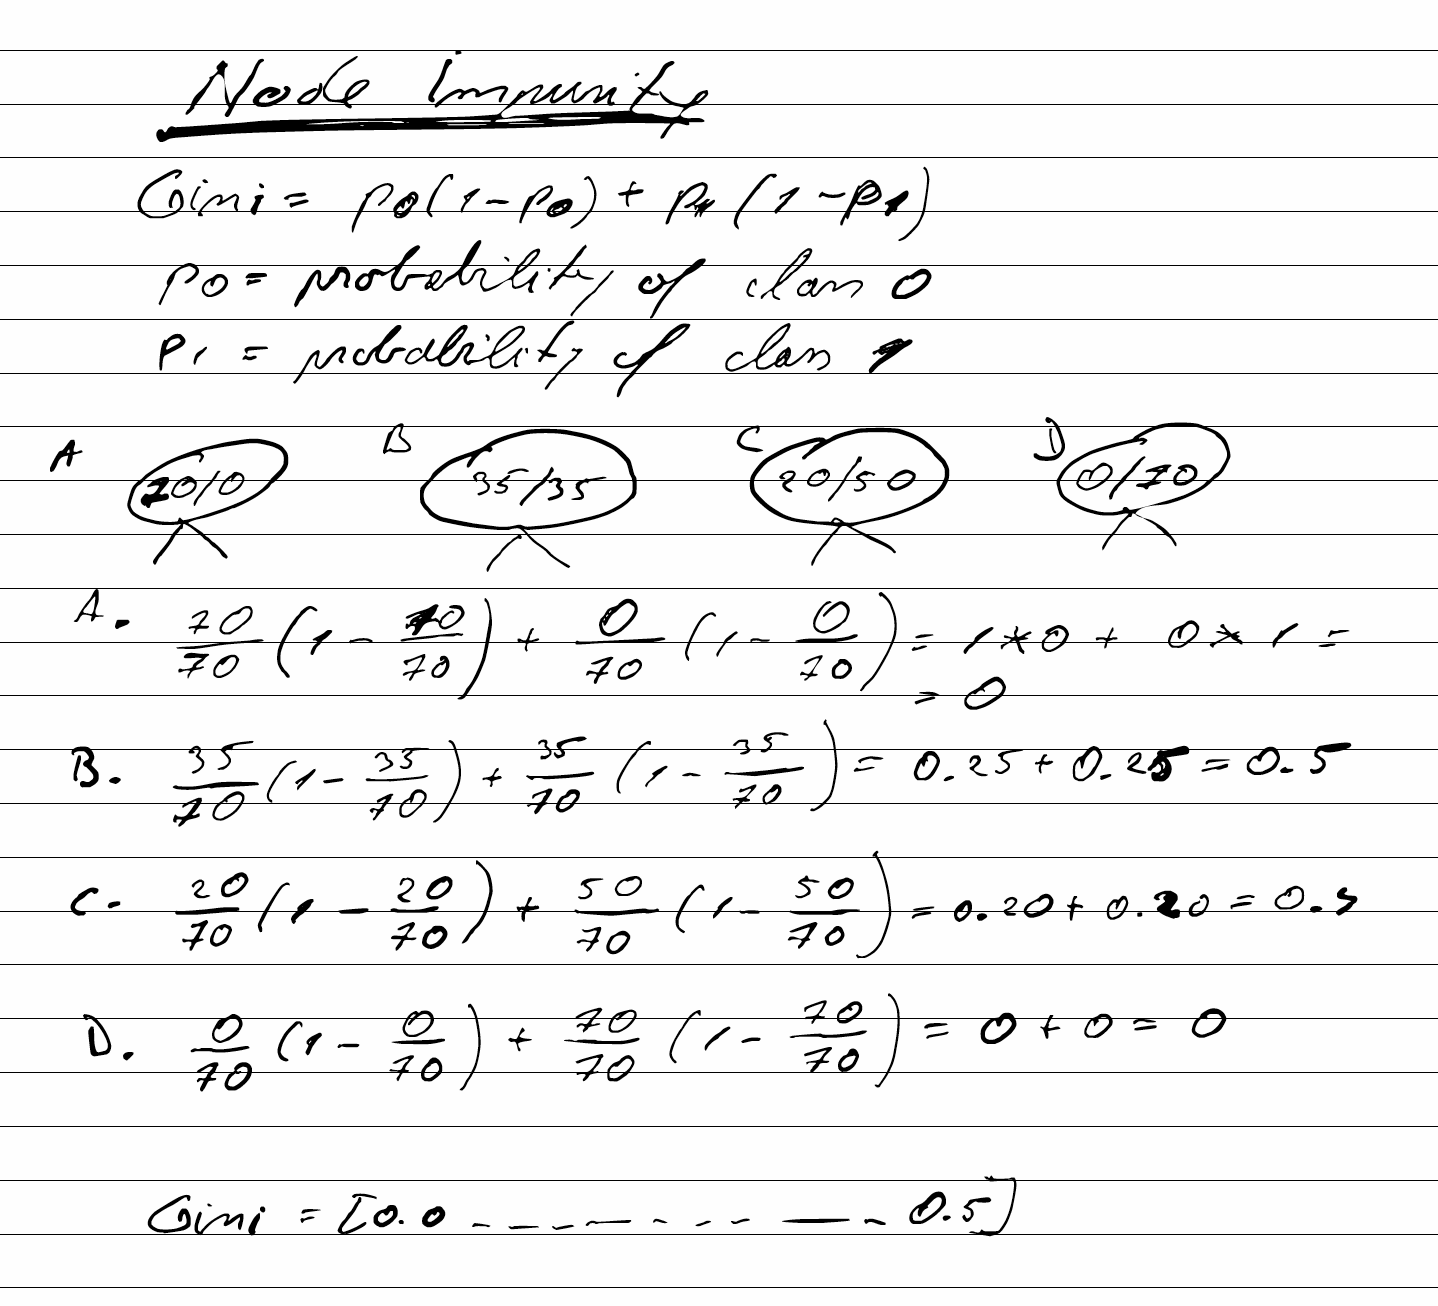 Node Impurity
Gini = p0(1-p0) + p1(1-p1)
p0 = probability of class 0
p1 = probability of class 1
A 70/0 B 35/35 C 20/50 D 0/70
A. 70/70 (1 - 70/70) + 0/70 (1 - 0/70) = 1*0 + 0*1 =
= 0
B. 35/70 (1 - 35/70) + 35/70 (1 - 35/70) = 0.25 + 0.25 = 0.5
C. 20/70 (1 - 20/70) + 50/70 (1 - 50/70) = 0.20 + 0.20 = 0.4
D. 0/70 (1 - 0/70) + 70/70 (1 - 70/70) = 0 + 0 = 0
Gini = [0.0 - - - - - - - - - 0.5]